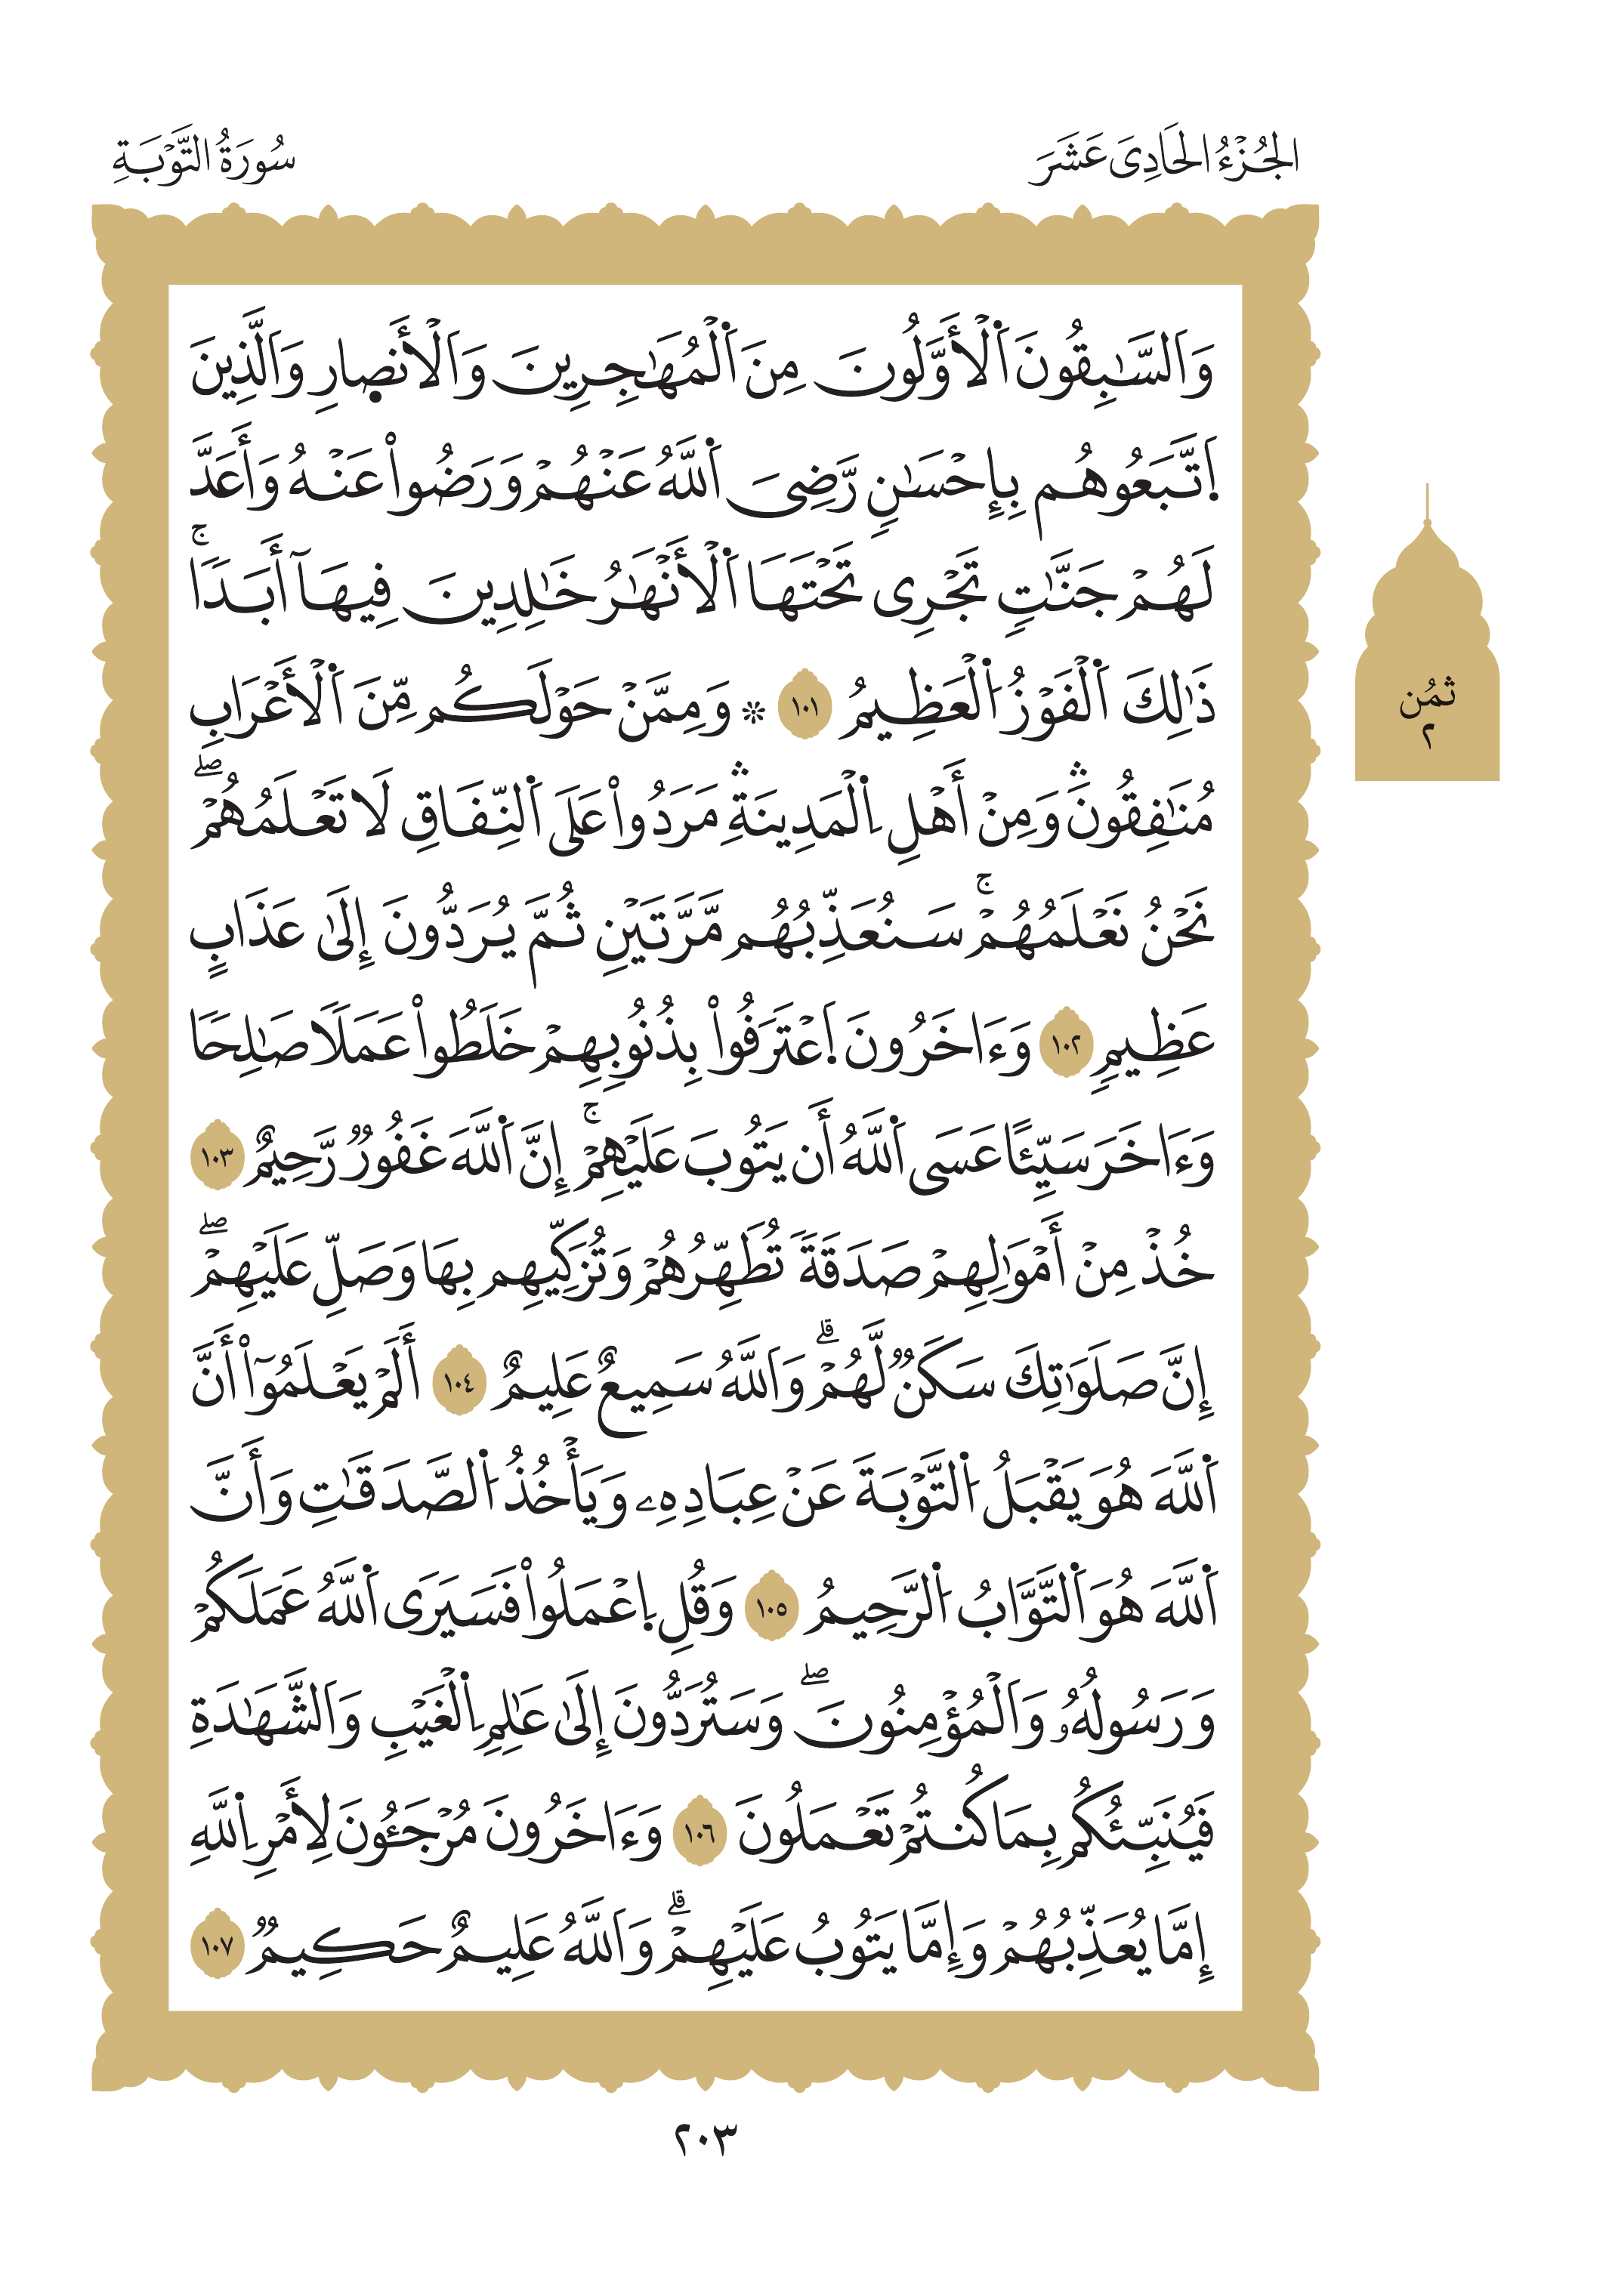 الجُزْءُ الحَادِىَ عَشَرَ
سُورَةُ التَّوْبَةِ
وَاَلسَّٰبِقُونَ اَ۬لْأَوَّلُونَ مِنَ اَ۬لْمُهَٰجِرِينَ وَاَلْأَنص۪ارِ وَاَلَّذِينَ
اِ۪تَّبَعُوهُم بِإِحْسَٰنٖ رَّضِىَ اَ۬للَّهُ عَنْهُمْ وَرَضُواْ عَنْهُ وَأَعَدَّ
لَهُمْ جَنَّٰتٖ تَجْرِى تَحْتَهَا اَ۬لْأَنْهَٰرُ خَٰلِدِينَ فِيهَآ أَبَدٗاۚ
ذَٰلِكَ اَ۬لْفَوْزُ اُ۬لْعَظِيمُ ١٠١ ۞ وَمِمَّنْ حَوْلَكُم مِّنَ اَ۬لْأَعْرَابِ
مُنَٰفِقُونَۛ وَمِنْ أَهْلِ اِ۬لْمَدِينَةِۛ مَرَدُواْ عَلَى اَ۬لنِّفَاقِ لَا تَعْلَمُهُمْۖ
نَحْنُ نَعْلَمُهُمْۚ سَنُعَذِّبُهُم مَّرَّتَيْنِ ثُمَّ يُرَدُّونَ إِلَىٰ عَذَابٍ
عَظِيمٖ ١٠٢ وَءَاخَرُونَ اَ۪عْتَرَفُواْ بِذُنُوبِهِمْ خَلَطُواْ عَمَلٗا صَٰلِحٗا
وَءَاخَرَ سَيِّئًا عَسَى اَ۬للَّهُ أَن يَتُوبَ عَلَيْهِمْۚ إِنَّ اَ۬للَّهَ غَفُورٞ رَّحِيمٌ ١٠٣
خُذْ مِنْ أَمْوَٰلِهِمْ صَدَقَةٗ تُطَهِّرُهُمْ وَتُزَكِّيهِم بِهَا وَصَلِّ عَلَيْهِمْۖ
إِنَّ صَلَوَٰتِكَ سَكَنٞ لَّهُمْۗ وَاَللَّهُ سَمِيعٌ عَلِيمٌ ١٠٤ أَلَمْ يَعْلَمُوٓاْ أَنَّ
اَ۬للَّهَ هُوَ يَقْبَلُ اُ۬لتَّوْبَةَ عَنْ عِبَادِهِۦ وَيَأْخُذُ اُ۬لصَّدَقَٰتِ وَأَنَّ
اَ۬للَّهَ هُوَ اَ۬لتَّوَّابُ اُ۬لرَّحِيمُ ١٠٥ وَقُلِ اِ۪عْمَلُواْ فَسَيَرَى اَ۬للَّهُ عَمَلَكُمْ
وَرَسُولُهُۥ وَاَلْمُؤْمِنُونَۖ وَسَتُرَدُّونَ إِلَىٰ عَٰلِمِ اِ۬لْغَيْبِ وَاَلشَّهَٰدَةِ
فَيُنَبِّئُكُم بِمَا كُنتُمْ تَعْمَلُونَ ١٠٦ وَءَاخَرُونَ مُرْجَـُٔونَ لِأَمْرِ اِ۬للَّهِ
إِمَّا يُعَذِّبُهُمْ وَإِمَّا يَتُوبُ عَلَيْهِمْۗ وَاَللَّهُ عَلِيمٌ حَكِيمٞ ١٠٧
ثُمُن
٢
٢٠٣